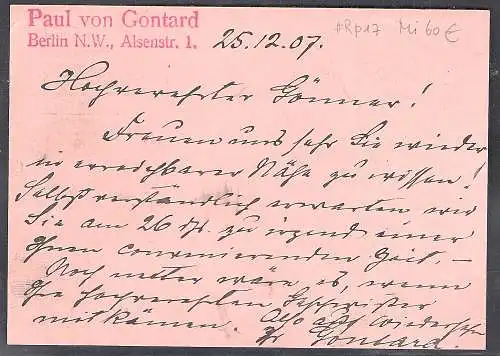 Paul von Gontard
Berlin N.W., Alsenstr. 1.
25.12.07.
#Rp17 Mi 60 €
Hochverehrter Gönner!
Freuen uns sehr Sie wieder
in erreichbarer Nähe zu wissen!
Selbstverständlich erwarten wir
Sie am 26 ds. zu irgend einer
Ihnen convenierenden Zeit. –
Noch netter wäre es, wenn
Ihre hochverehrten Geschwister
mitkämen. Also auf Wiedersehn
Ihr Gontard.